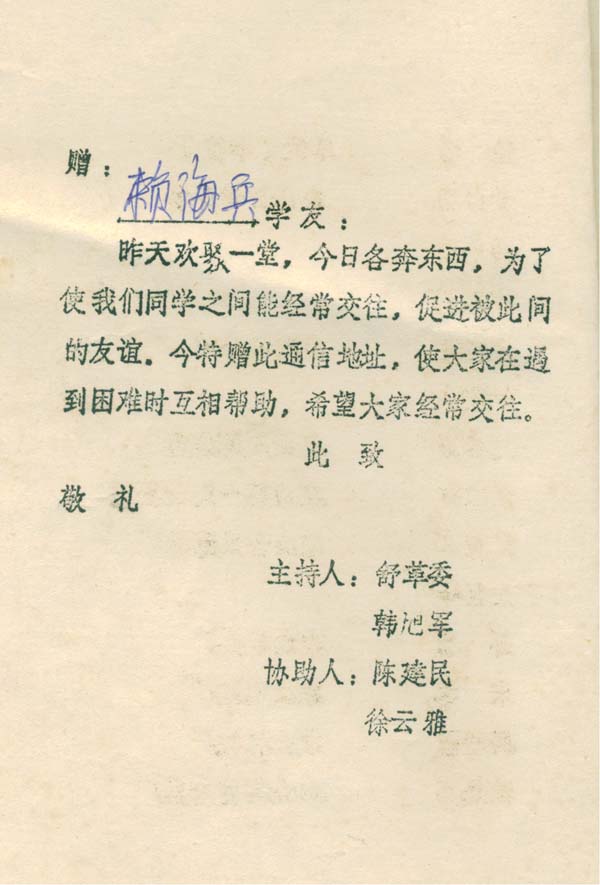 赠：
赖海兵学友：
昨天欢聚一堂，今日各奔东西，为了
使我们同学之间能经常交往，促进被此间
的友谊。今特赠此通信地址，使大家在遇
到困难时互相帮助，希望大家经常交往。
此 致
敬 礼
主持人：舒革委
韩旭军
协助人：陈建民
徐云雅